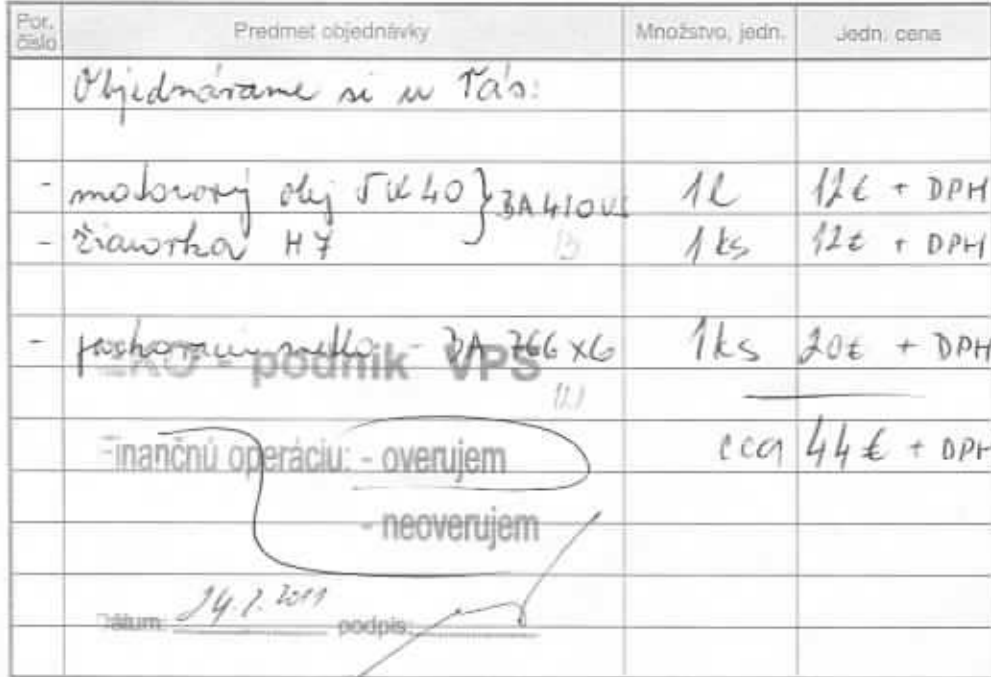 Por. číslo Predmet objednávky Množstvo, jedn. Jedn. cena
Objednávame si u Vás:
- motorový olej 5W40 } BA410VL 1l 12€ + DPH
- žiarovka H7 1ks 12€ + DPH
- svetlo - BA 766 XG 1ks 20€ + DPH
- podnik VPS
cca 44€ + DPH
Finančnú operáciu: - overujem
- neoverujem
Dátum: podpis: